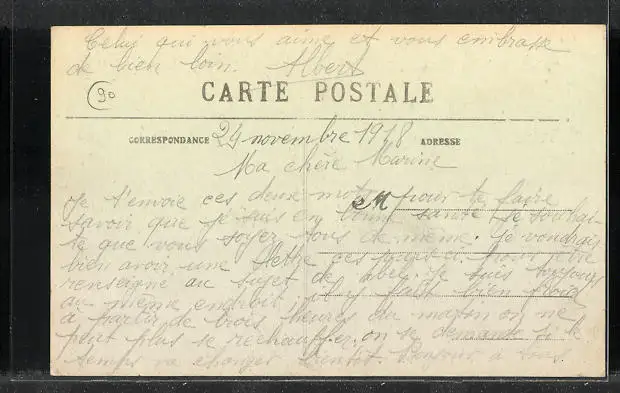 Celui qui vous aime et vous embrasse
de bien loin. Albert
90
CARTE POSTALE
CORRESPONDANCE 24 novembre 1918 ADRESSE
Ma chère Marine
Je t'envoie ces deux mots pour te faire
savoir que je suis en bonne santé je souhai-
te que vous soyez tous de même. Je voudrais
bien avoir une lettre ces jours-ci pour être
renseigné au sujet de Abel. Je suis toujours
au même endroit il y fait bien froid
à partir de trois heures du matin on ne
peut plus se réchauffer. on se demande si le
temps va changer bientôt. Bonsoir à tous.